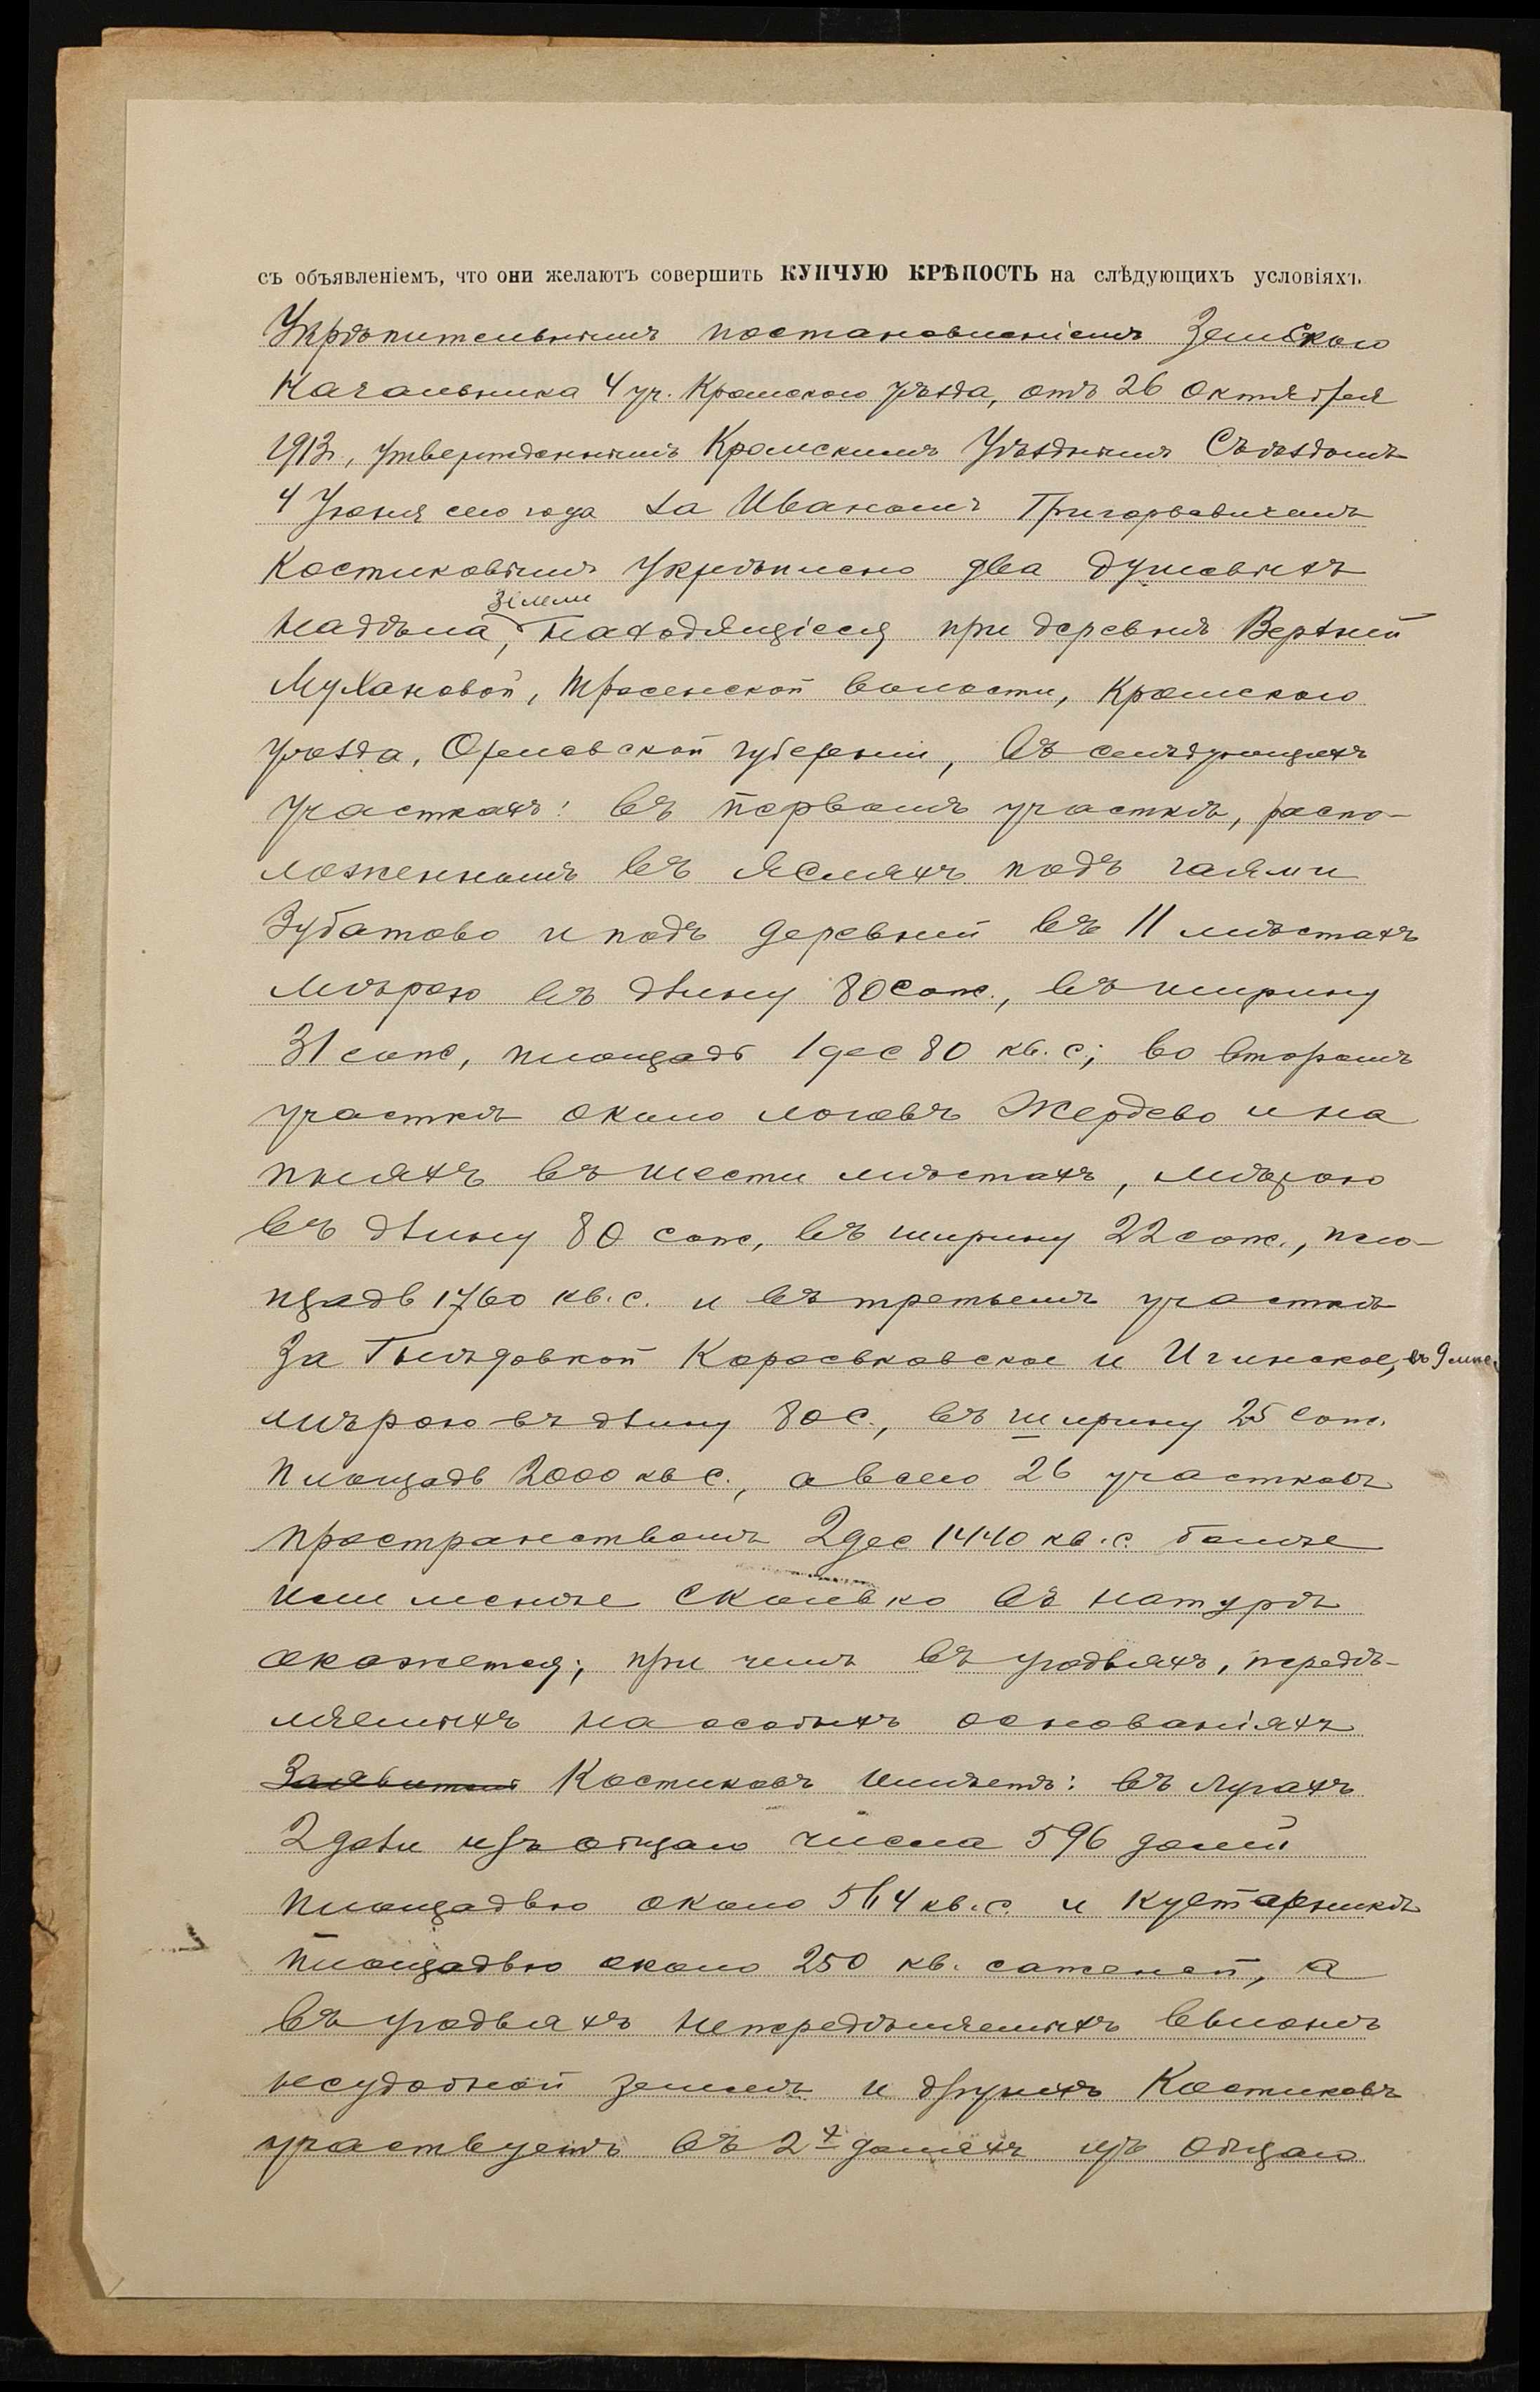 съ объявленіемъ, что они желаютъ совершить КУПЧУЮ КРѢПОСТЬ на слѣдующихъ условіяхъ
Укрѣпительнымъ постановленіемъ Земскаго
Начальника 4 уч. Кромскаго уѣзда, отъ 26 Октября
1913, утвержденнымъ Кромскимъ Уѣзднымъ Съѣздомъ
4 Іюня сего года за Иваномъ Григорьевичемъ
Костиковымъ укрѣплено два душевыхъ
надѣла, земли находящіеся при деревнѣ Верхней
Мухановой, Тросенской волости, Кромскаго
уѣзда, Орловской губерніи, въ слѣдующихъ
участкахъ: въ первомъ участкѣ, распо-
ложенномъ въ подъ гаями
Зубатово и подъ деревней въ 11 мѣстахъ
мѣрою въ длину 80 саж., въ ширину
31 саж, площадь 1 дес 80 кв. с; во второмъ
участкѣ около логовъ Жердево и на
въ шести мѣстахъ, мѣрою
въ длину 80 саж, въ ширину 22 саж., пло-
щадь 1760 кв. с. и въ третьемъ участкѣ
За Гнѣздовкой Кароськовское и Игинское, въ 9 мѣс.
мѣрою въ длину 80 с., въ ширину 25 саж.
площадь 2000 кв с., а всего 26 участковъ
пространствомъ 2 дес 1440 кв. с. болѣе
или менѣе сколько въ натурѣ
окажется; при чемъ въ угодьяхъ, передѣ-
ляемыхъ на особыхъ основаніяхъ
Костиковъ имѣетъ: въ лугахъ
2 доли изъ общаго числа 596 долей
площадью около 564 кв. с. и кустарникѣ
площадью около 250 кв. саженей, а
въ угодьяхъ непередѣляемыхъ
неудобной землѣ и другихъ Костиковъ
участвуетъ въ 2х доляхъ изъ общаго